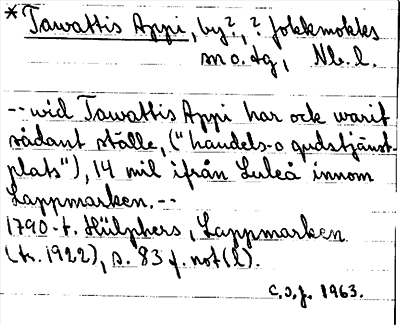 *Tawattis Appi, by?, ? Jokkmokks
sn o. tg, Nb. l.
-- wid Tawattis Appi har ock warit
sådant ställe, ("handels- o gudstjänst-
plats"), 14 mil ifrån Luleå innom
Lappmarken. --
1790-t. Hülphers, Lappmarken
(tr. 1922), s. 83 f. not (l).
C.S.J. 1963.